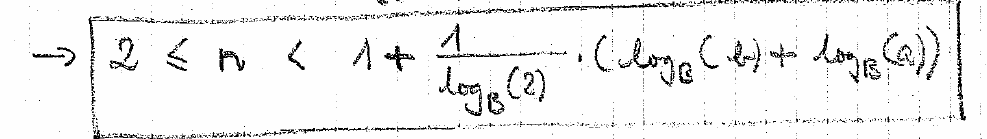 → 2 ≤ n < 1 + 1/log_B(2) · (log_B(b) + log_B(a))